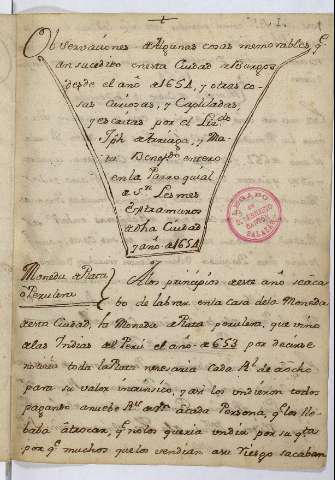 1.
Observaciones de Algunas cosas memorables, q.
an sucedido en esta Ciudad de Burgos
desde el año de 1654, y otras co
sas Curiosas, y Capituladas
y escritas por el Liz.do
Jph de Arriaga, y Ma
ta Benefdo. entero
en la Parroquial
de Sn. Lesmes
extramuros
de dha Ciudad
y año de 1654
LEGADO
BURGOS
Moneda de Plata
o Perulera
A los principios de este año se aca
bo de labrar en la casa de la Moneda
de esta Ciudad, la Moneda de Plata perulera, que vino
de las Indias del Perú el año de 653 por decirse
toda la Plata cada Rl. de a ocho
para su valor intrinsico, y asi los undieron todos
pagando a nueve Rs. de a cada Persona, q. los lle
baba a trocar, q. no los queria undir por su qta
por q. muchos que los vendian a su riesgo sacaban